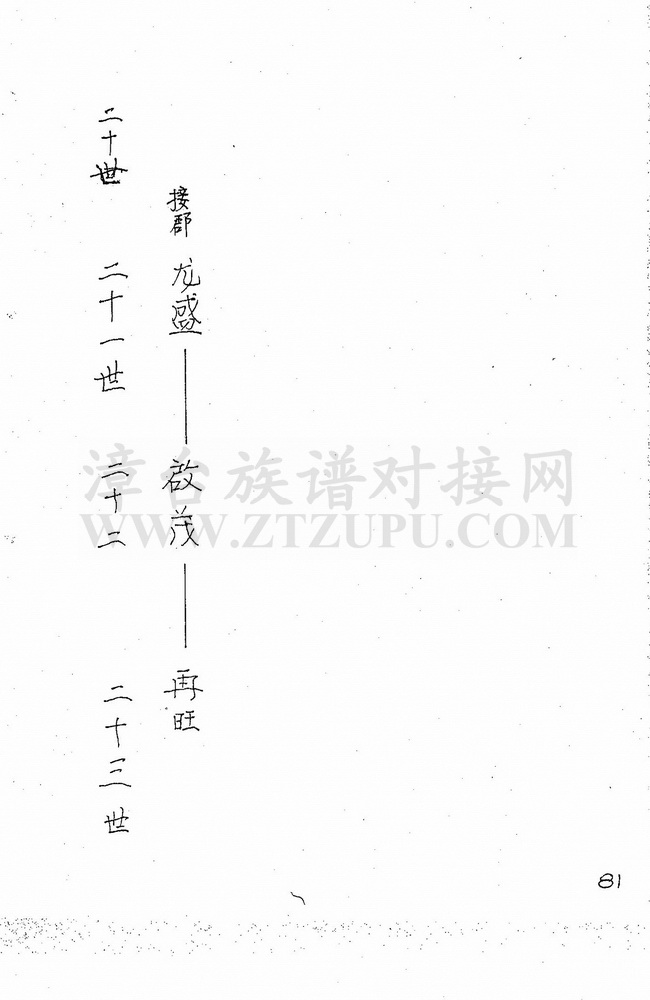 接郡 龙盛——啟茂——再旺
二十世 二十一世 二十二 二十三世
漳台族谱对接网
WWW.ZTZUPU.COM
81